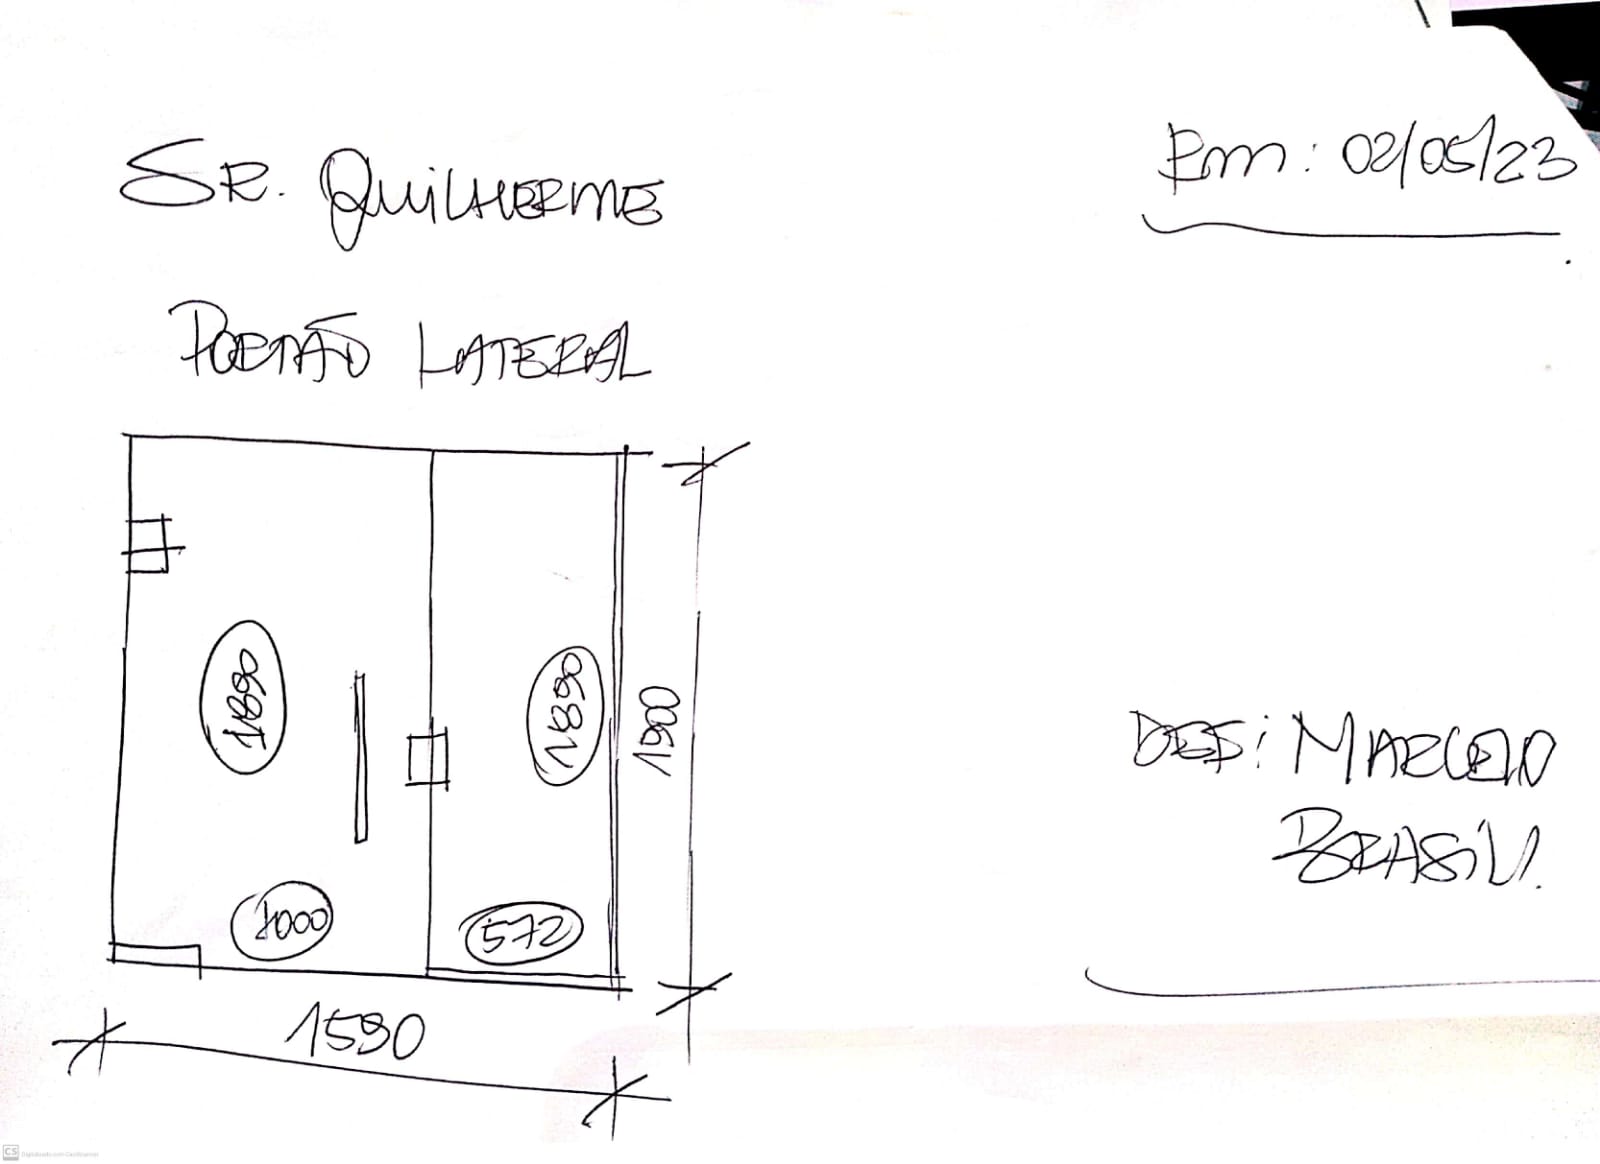 SR. GUILHERME
Em: 02/05/23
PORTÃO LATERAL
1890
1890
1900
DES: MARCELO
BRASIL.
1000
572
1590
CS Digitalizado com CamScanner